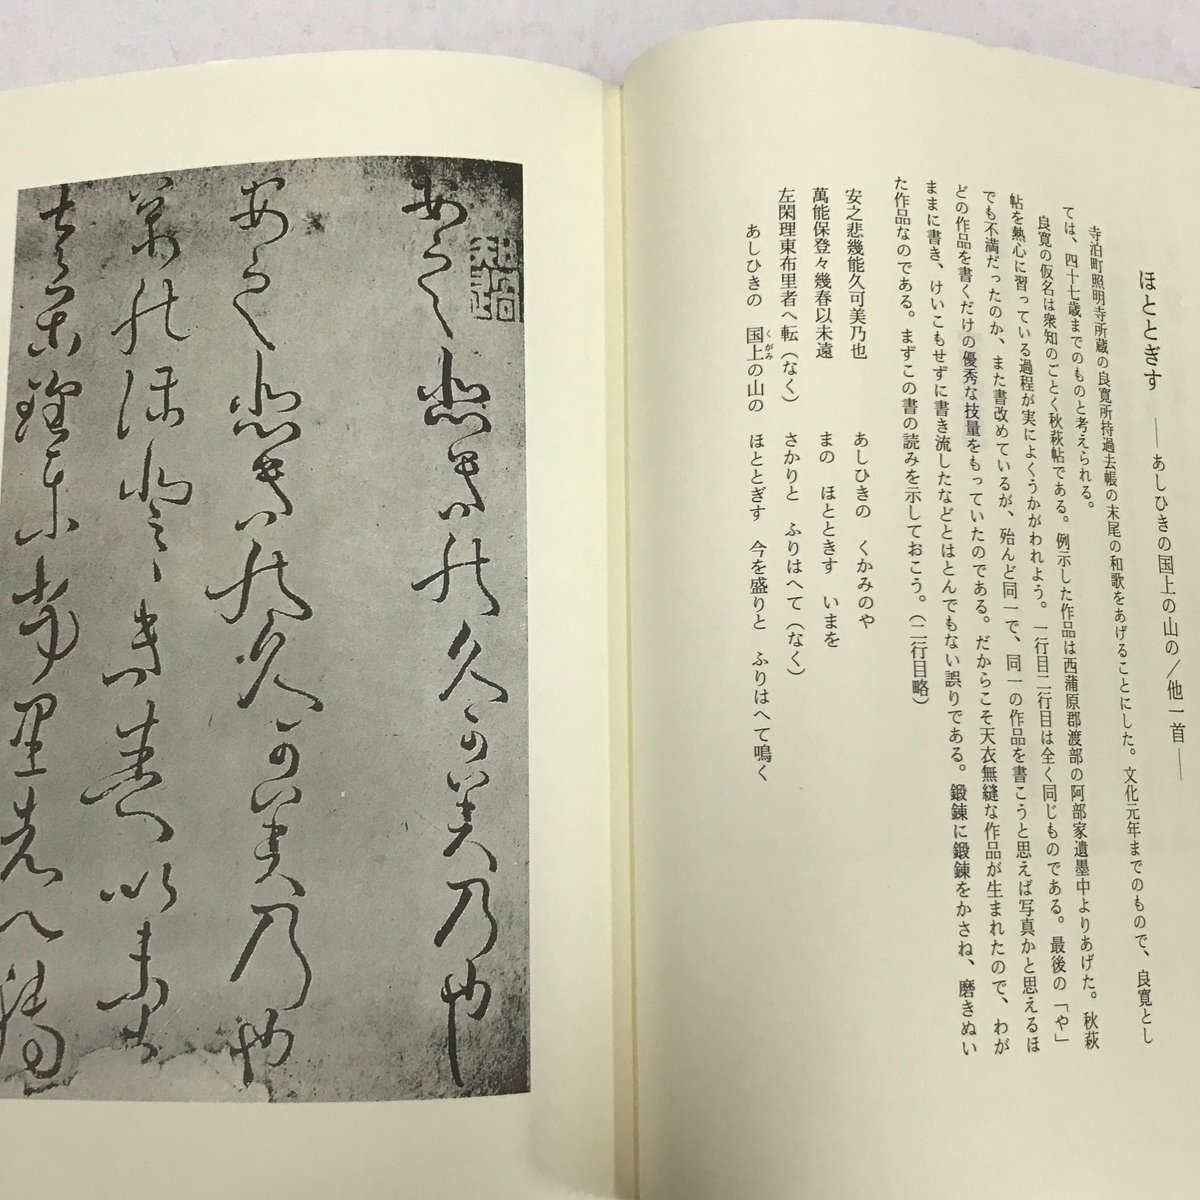 ほととぎす　――あしひきの国上の山の／他一首――
寺泊町照明寺所蔵の良寛所持過去帳の末尾の和歌をあげることにした。文化元年までのもので、良寛とし
ては、四十七歳までのものと考えられる。
良寛の仮名は衆知のごとく秋萩帖である。例示した作品は西蒲原郡渡部の阿部家遺墨中よりあげた。秋萩
帖を熱心に習っている過程が実によくうかがわれよう。一行目二行目は全く同じものである。最後の「や」
でも不満だったのか、また書改めているが、殆んど同一で、同一の作品を書こうと思えば写真かと思えるほ
どの作品を書くだけの優秀な技量をもっていたのである。だからこそ天衣無縫な作品が生まれたので、わが
ままに書き、けいこもせずに書き流したなどとはとんでもない誤りである。鍛錬に鍛錬をかさね、磨きぬい
た作品なのである。まずこの書の読みを示しておこう。（二行目略）
安之悲幾能久可美乃也　あしひきの　くかみのや
萬能保登々幾春以未遠　まの　ほとときす　いまを
左閑理東布里者へ転（なく）　さかりと　ふりはへて（なく）
あしひきの　国上の山の　ほととぎす　今を盛りと　ふりはへて鳴く
くがみ
安之悲幾能久可美乃也
安之悲幾能久可美乃也
萬能保登々幾春以未遠
左閑理東布里者へ転